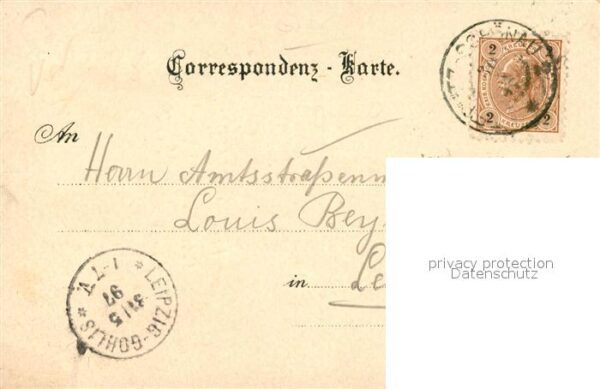 Correspondenz-Karte.
2
2 2
An
Herrn Amtsstraßenm
Louis Bey
in Le
LEIPZIG-GOHLIS
31/5
97
1-7 V
privacy protection
Datenschutz